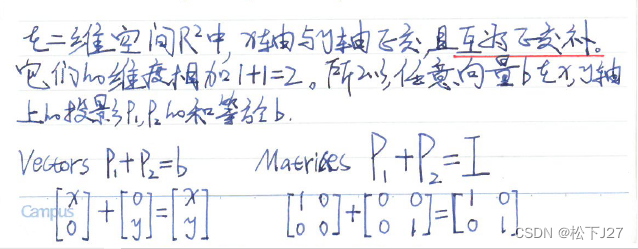 在二维空间R²中，x轴与y轴正交，且互为正交补。
它们的维度相加1+1=2。所以任意向量b在x,y轴
上的投影P₁,P₂的和等于b.
Vectors P₁+P₂=b Matrices P₁+P₂=I
[x 0]+[0 y]=[x y] [1 0 0 0]+[0 0 0 1]=[1 0 0 1]
Campus
CSDN @松下J27